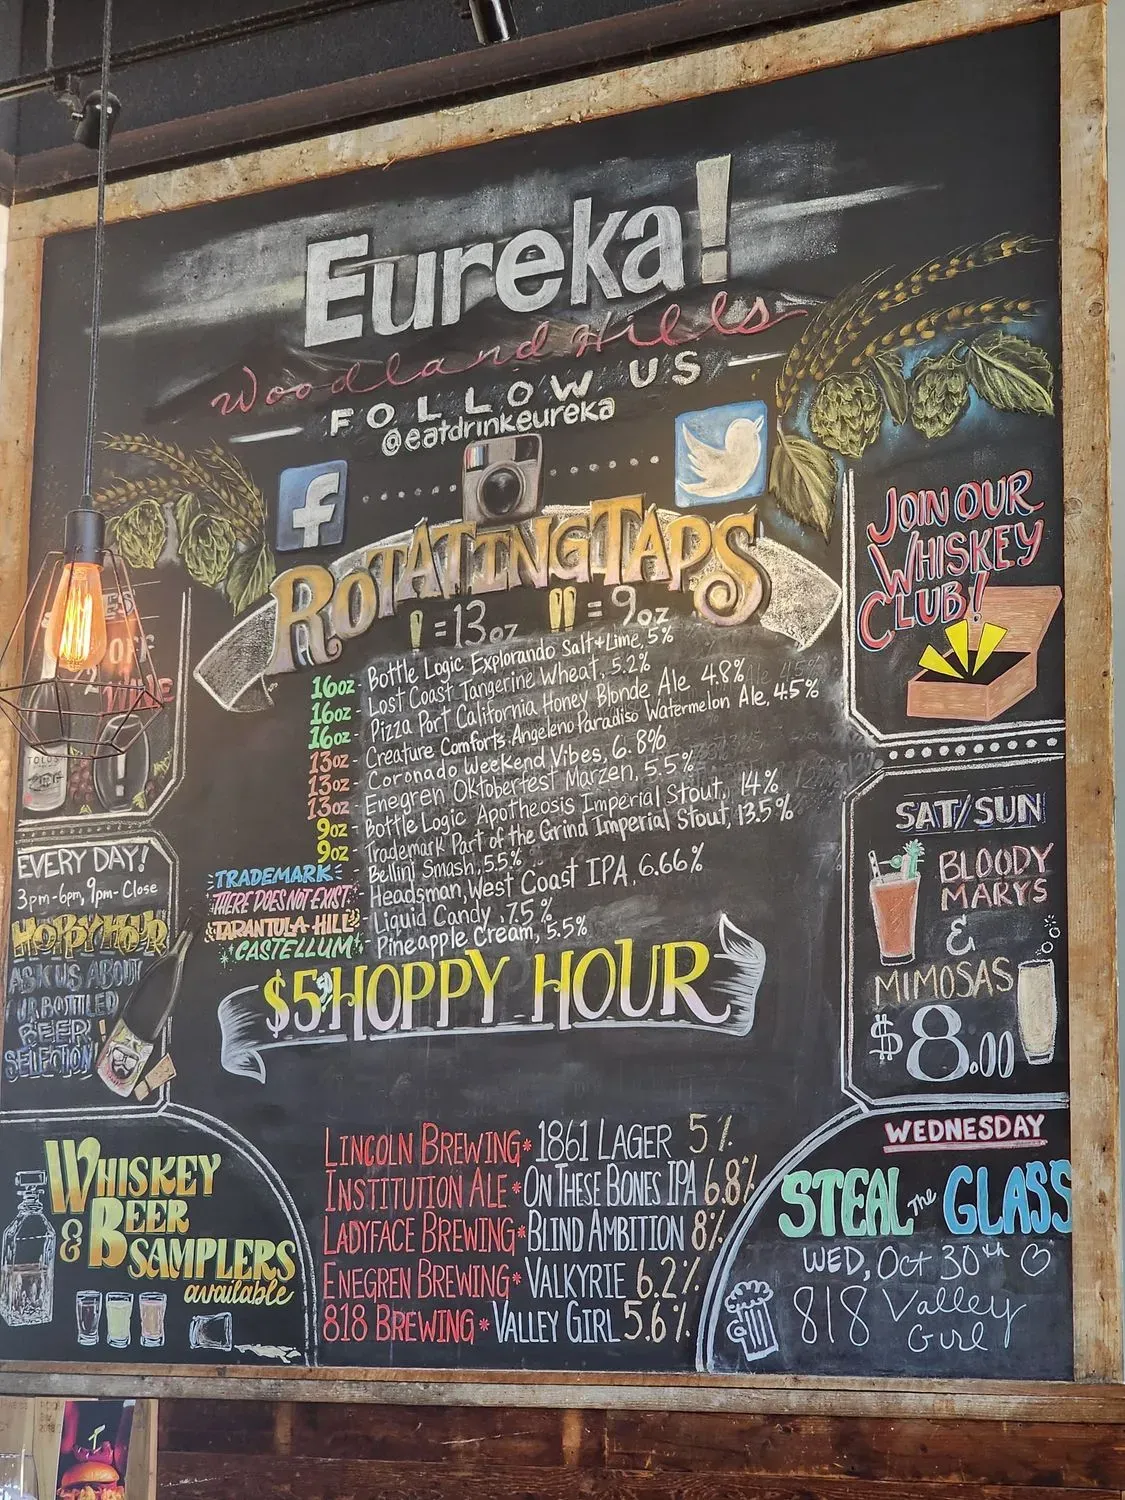 Eureka!
Woodland Hills
FOLLOW US
@eatdrinkeureka
f
ROTATING TAPS
= 13oz = 9oz
16oz - Bottle Logic Explorando Salt+Lime, 5%
16oz - Lost Coast Tangerine Wheat, 5.2%
16oz - Pizza Port California Honey Blonde Ale 4.8%
13oz - Creature Comforts Angeleno Paradiso Watermelon Ale, 4.5%
13oz - Coronado Weekend Vibes, 6.8%
13oz - Enegren Oktoberfest Marzen, 5.5%
9oz - Bottle Logic Apotheosis Imperial Stout, 14%
9oz - Trademark Part of the Grind Imperial Stout, 13.5%
TRADEMARK - Bellini Smash, 5.5%
THERE DOES NOT EXIST - Headsman, West Coast IPA, 6.66%
TARANTULA HILL - Liquid Candy, 7.5%
*CASTELLUM* - Pineapple Cream, 5.5%
$5 HOPPY HOUR
LINCOLN BREWING* 1861 LAGER 5%
INSTITUTION ALE* ON THESE BONES IPA 6.8%
LADYFACE BREWING* BLIND AMBITION 8%
ENEGREN BREWING* VALKYRIE 6.2%
818 BREWING* VALLEY GIRL 5.6%
OFF
EVERY DAY!
3pm-6pm, 9pm-Close
HOPPY HOUR
ASK US ABOUT
OUR BOTTLED
BEER
SELECTION!
WHISKEY
& BEER
SAMPLERS
available
JOIN OUR
WHISKEY
CLUB!
SAT/SUN
BLOODY
MARYS
&
MIMOSAS
$8.00
WEDNESDAY
STEAL THE GLASS
WED, Oct 30th
818 Valley
Girl